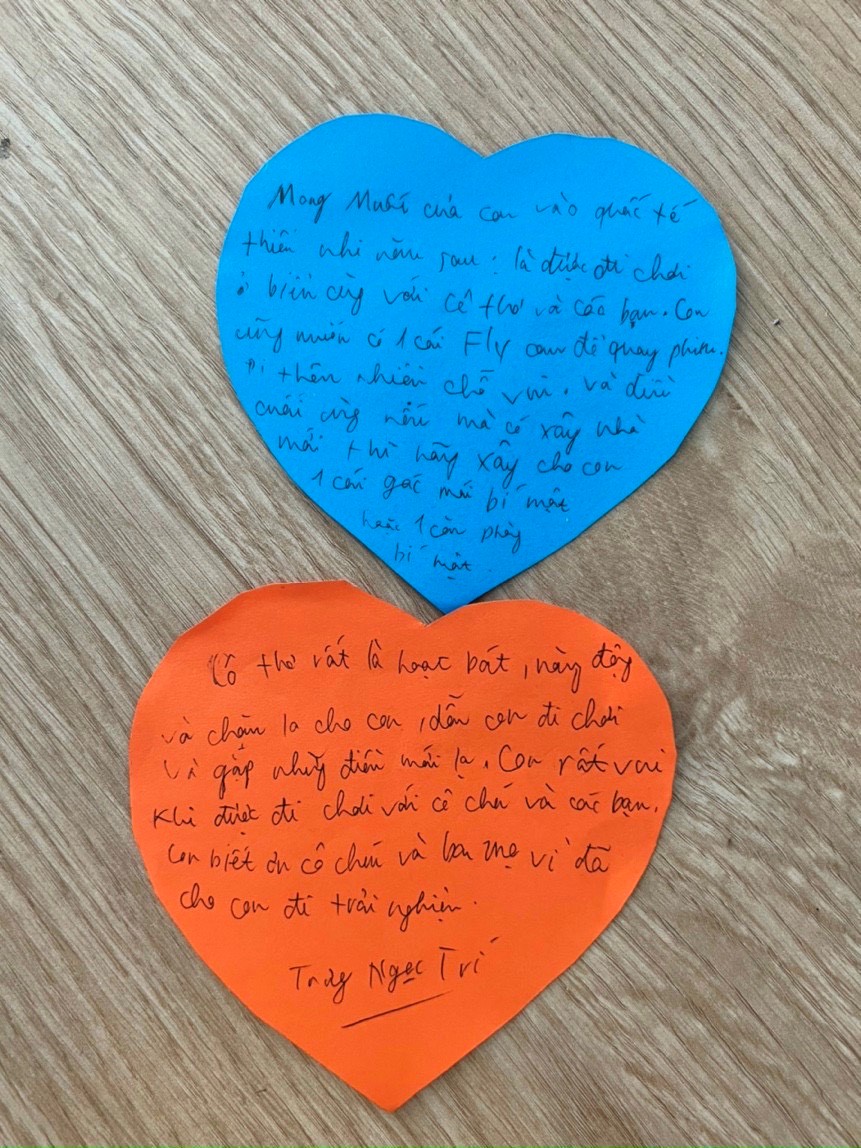 Mong Muốn của con vào quốc tế
thiếu nhi năm sau : là được đi chơi
ở biển cùng với cô thơ và các bạn. Con
cũng muốn có 1 cái Fly cam để quay phim.
Đi thiên nhiên chỗ vui. và điều
cuối cùng nếu mà có xây nhà
mới thì hãy xây cho con
1 cái gác mái bí mật
hoặc 1 căn phòng
bí mật.
Cô thơ rất là hoạt bát, năng động
và chăm lo cho con, dẫn con đi chơi
và gặp những điều mới lạ. Con rất vui
khi được đi chơi với cô chú và các bạn.
Con biết ơn cô chú và ba mẹ vì đã
cho con đi trải nghiệm.
Ngọc Trí